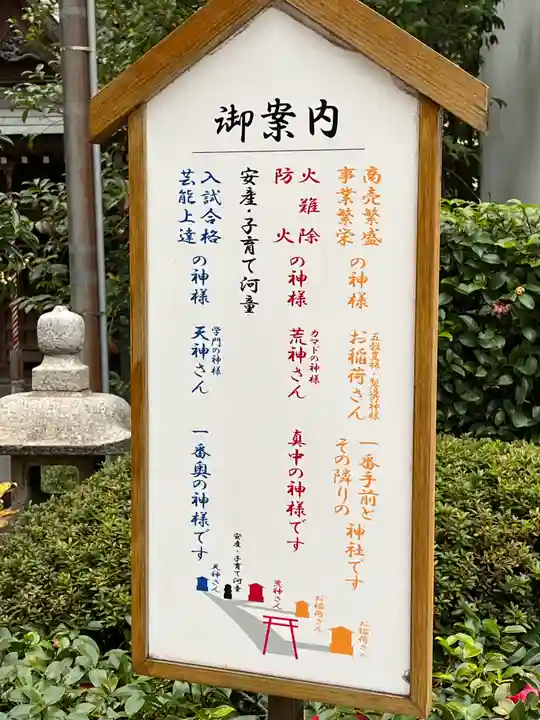 御案内
商売繁盛
事業繁栄
の神様
お稲荷さん
一番手前と
その隣りの
神社です
火難除
防火
の神様
カマドの神様
荒神さん
真中の神様です
安産・子育て河童
入試合格
芸能上達
の神様
学門の神様
天神さん
一番奥の神様です
天神さん
安産・子育て河童
荒神さん
お稲荷さん
お稲荷さん